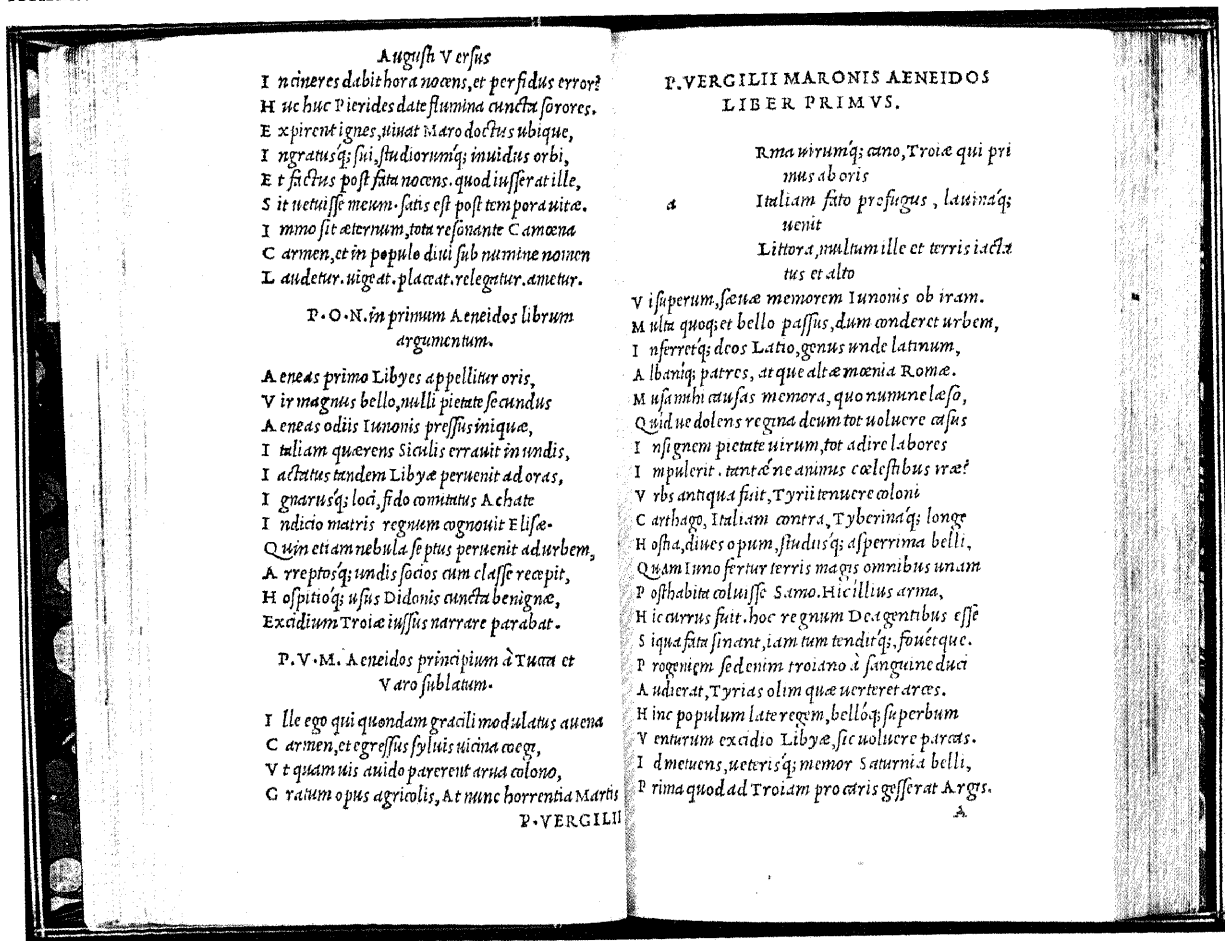 Augusti Versus
I n cineres dabit hora nocens, et perfidus error?
H uc huc Pierides date flumina cuncta sorores.
E xpirent ignes, uiuat Maro doctus ubique,
I ngratusq; sui, studiorumq́; inuidus orbi,
E t factus post fata nocens. quod iusserat ille,
S it uetuisse meum. satis est post tempora uitæ.
I mmo sit æternum, tota resonante Camœna
C armen, et in populo diui sub numine nomen
L audetur. uigeat. placeat. relegatur. ametur.
P.O.N. in primum Aeneidos librum
argumentum.
A eneas primo Libyes appellitur oris,
V ir magnus bello, nulli pietate secundus
A eneas odiis Iunonis pressus iniquæ,
I taliam quærens Siculis errauit in undis,
I actatus tandem Libyæ peruenit ad oras,
I gnarusq́; loci, fido comitatus Achate
I ndicio matris regnum cognouit Elisæ.
Q uin etiam nebula septus peruenit ad urbem,
A rreptosq́; undis socios cum classe recepit,
H ospitioq́; usus Didonis cuncta benignæ,
Excidium Troiæ iussus narrare parabat.
P.V.M. Aeneidos principium à Tucca et
Varo sublatum.
I lle ego qui quondam gracili modulatus auena
C armen, et egressus syluis uicina coegi,
V t quam uis auido parerent arua colono,
G ratum opus agricolis, At nunc horrentia Martis
P. VERGILII
P. VERGILII MARONIS AENEIDOS
LIBER PRIMVS.
a Rma uirumq́; cano, Troiæ qui pri
mus ab oris
Italiam fato profugus, lauinaq́;
uenit
Littora, multum ille et terris iacta
tus et alto
V i superum, sæuæ memorem Iunonis ob iram.
M ulta quoq; et bello passus, dum conderet urbem,
I nferretq́; deos Latio, genus unde latinum,
A lbaniq́; patres, atque altæ mœnia Romæ.
M usa mihi causas memora, quo numine læso,
Q uid ue dolens regina deum tot uoluere casus
I nsignem pietate uirum, tot adire labores
I mpulerit. tantæ ne animus cœlestibus iræ?
V rbs antiqua fuit, Tyrii tenuere coloni
C arthago, Italiam contra, Tyberinaq́; longe
H ostia, diues opum, studiisq́; asperrima belli,
Q uam Iuno fertur terris magis omnibus unam
P osthabita coluisse Samo. Hic illius arma,
H ic currus fuit. hoc regnum Dea gentibus esse
S iqua fata sinant, iam tum tenditq́;, fouétque.
P rogeniem sed enim troiano à sanguine duci
A udierat, Tyrias olim quæ uerteret arces.
H inc populum late regem, bellóq; superbum
V enturum excidio Libyæ, sic uoluere parcas.
I d metuens, ueterisq́; memor Saturnia belli,
P rima quod ad Troiam pro caris gesserat Argis.
A